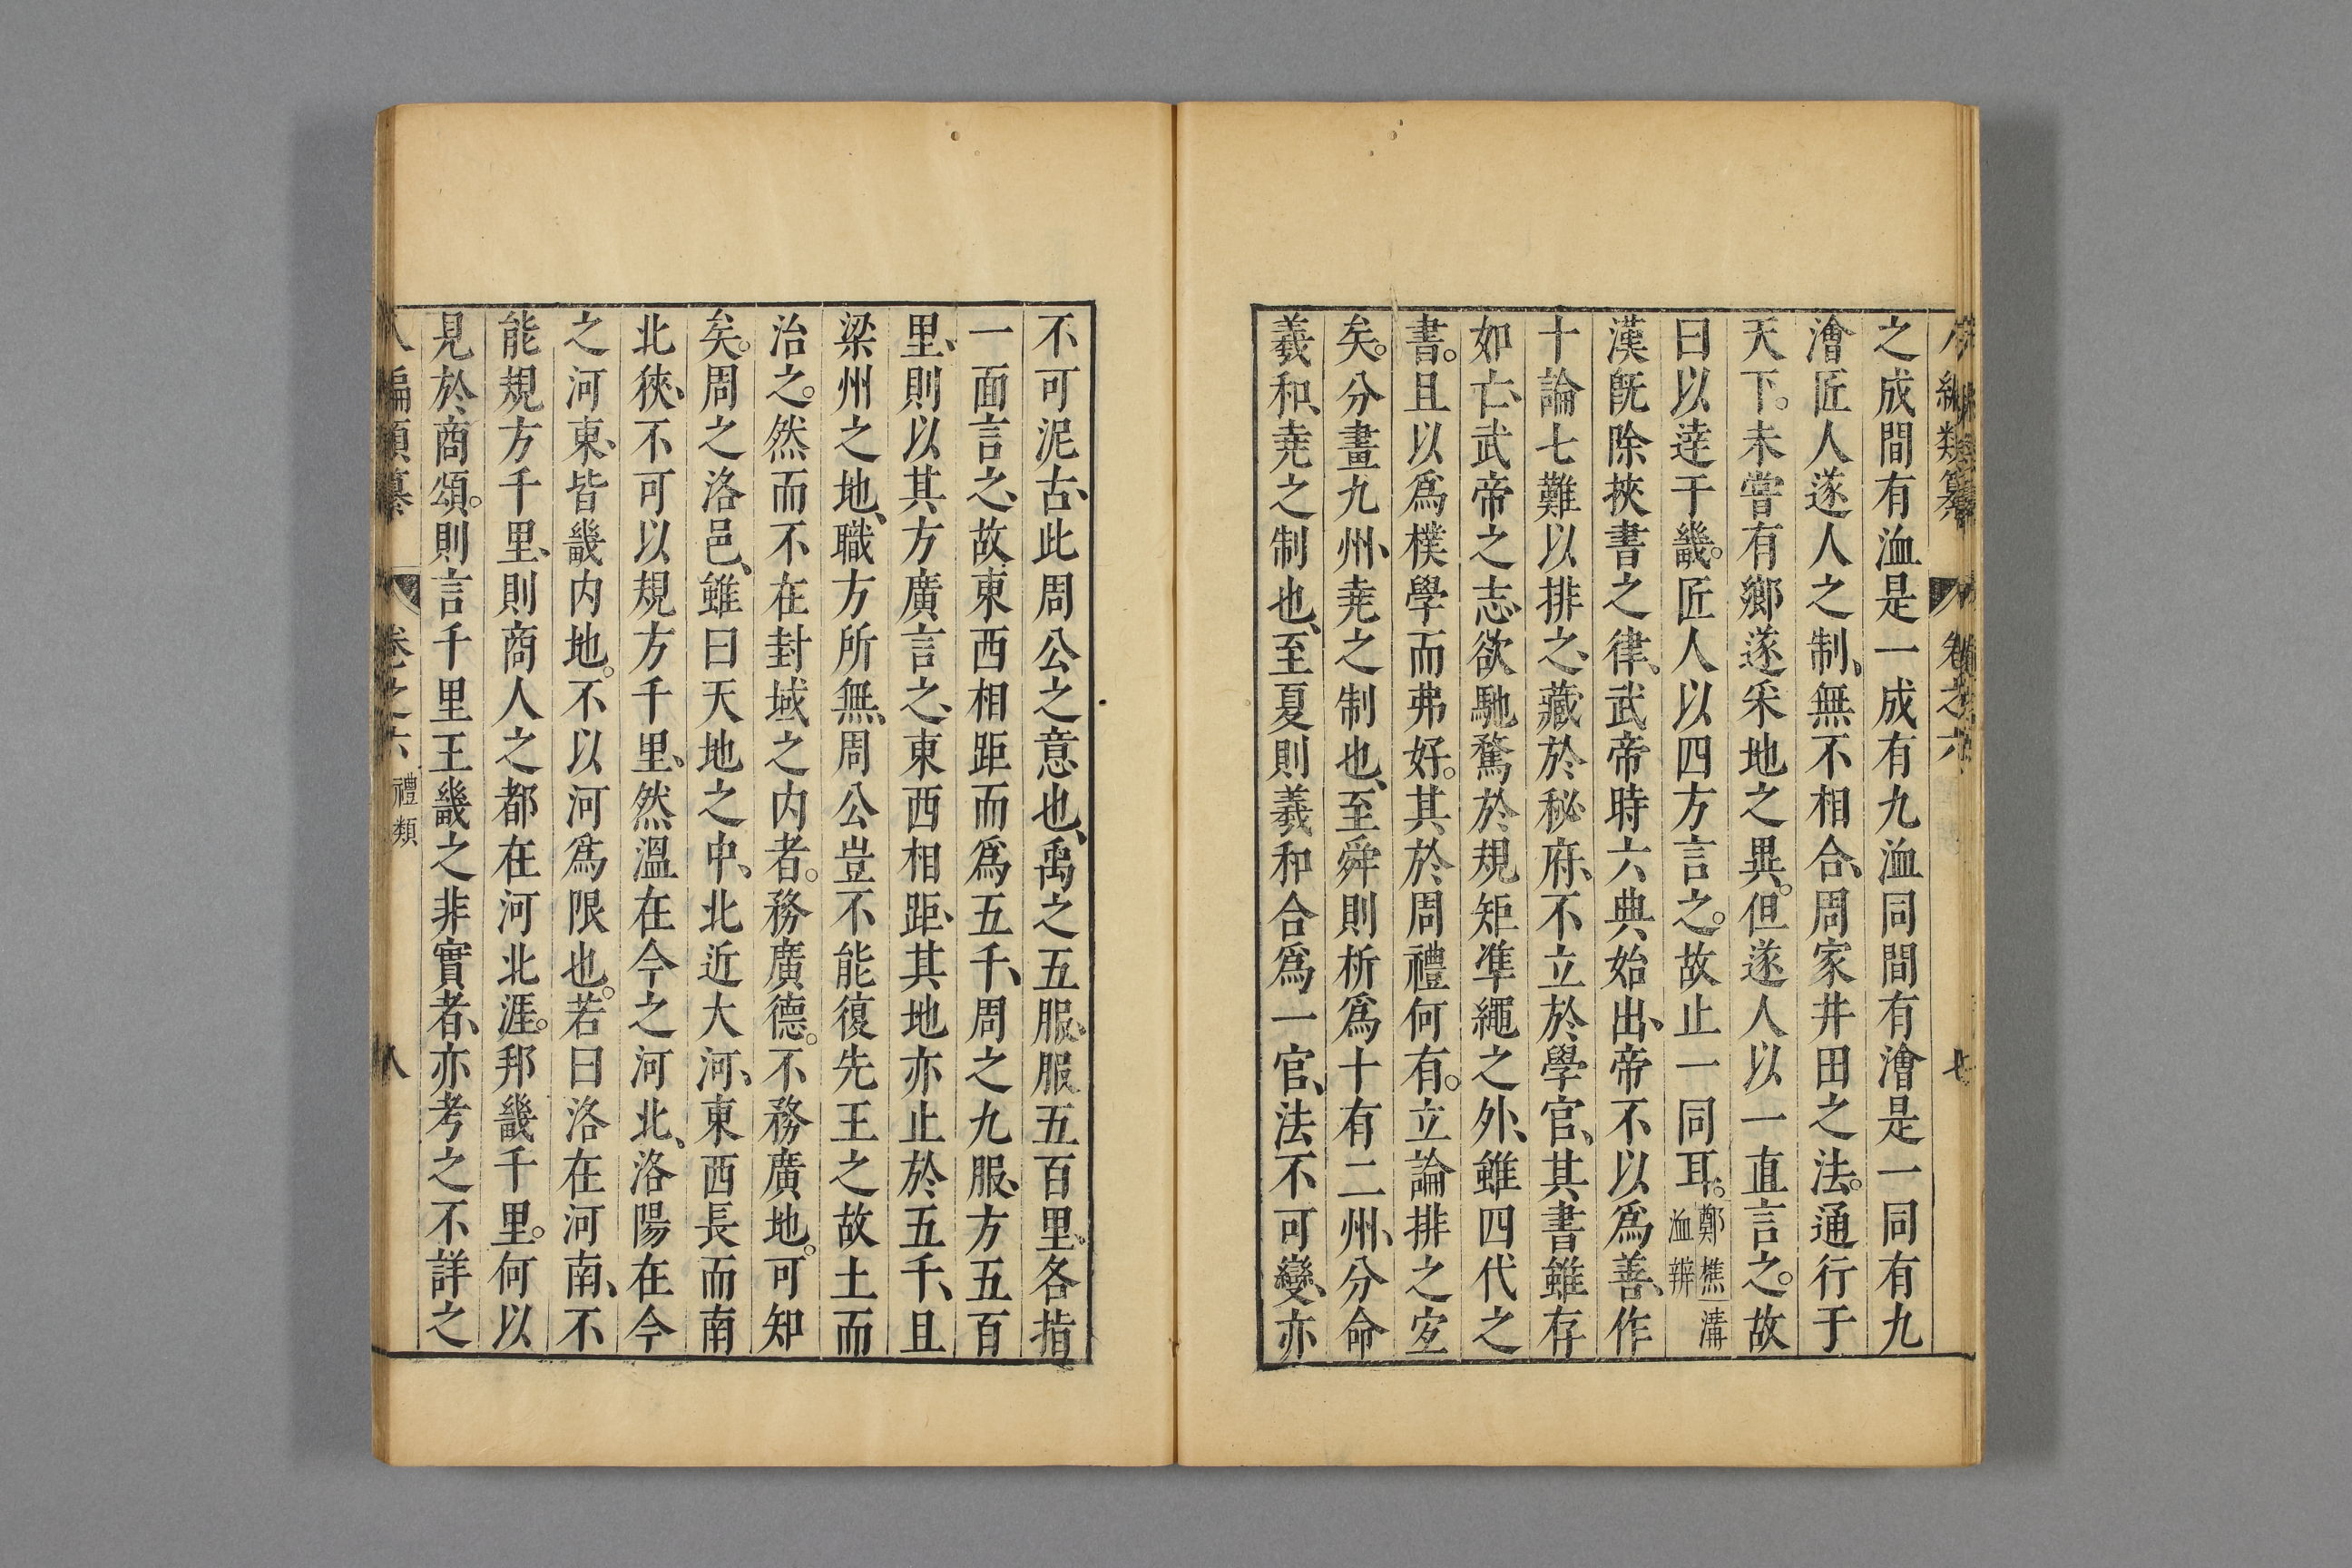 八編類纂 卷之六 七
之成間有洫是一成有九洫同間有澮是一同有九
澮匠人遂人之制、無不相合、周家井田之法。通行于
天下。未嘗有鄉遂采地之異。但遂人以一直言之。故
曰以達于畿。匠人以四方言之。故止一同耳。鄭樵溝洫辨
漢旣除挾書之律、武帝時六典始出、帝不以爲善、作
十論七難以排之、藏於秘府、不立於學官、其書雖存
如亡、武帝之志、欲馳騖於規矩準繩之外、雖四代之
書。且以爲樸學而弗好。其於周禮何有。立論排之宜
矣。分畫九州、堯之制也、至舜則析爲十有二州、分命
羲和、堯之制也、至夏則羲和合爲一官、法不可變、亦
不可泥古、此周公之意也、禹之五服、服五百里、各指
一面言之、故東西相距而爲五千、周之九服、方五百
里、則以其方廣言之、東西相距、其地亦止於五千、且
梁州之地、職方所無、周公豈不能復先王之故土而
治之。然而不在封域之内者。務廣德。不務廣地。可知
矣。周之洛邑、雖曰天地之中、北近大河、東西長而南
北狹、不可以規方千里、然溫在今之河北、洛陽在今
之河東、皆畿内地。不以河爲限也。若曰洛在河南、不
能規方千里、則商人之都在河北涯。邦畿千里。何以
見於商頌。則言千里王畿之非實者、亦考之不詳之
八編類纂 卷之六 禮類 八